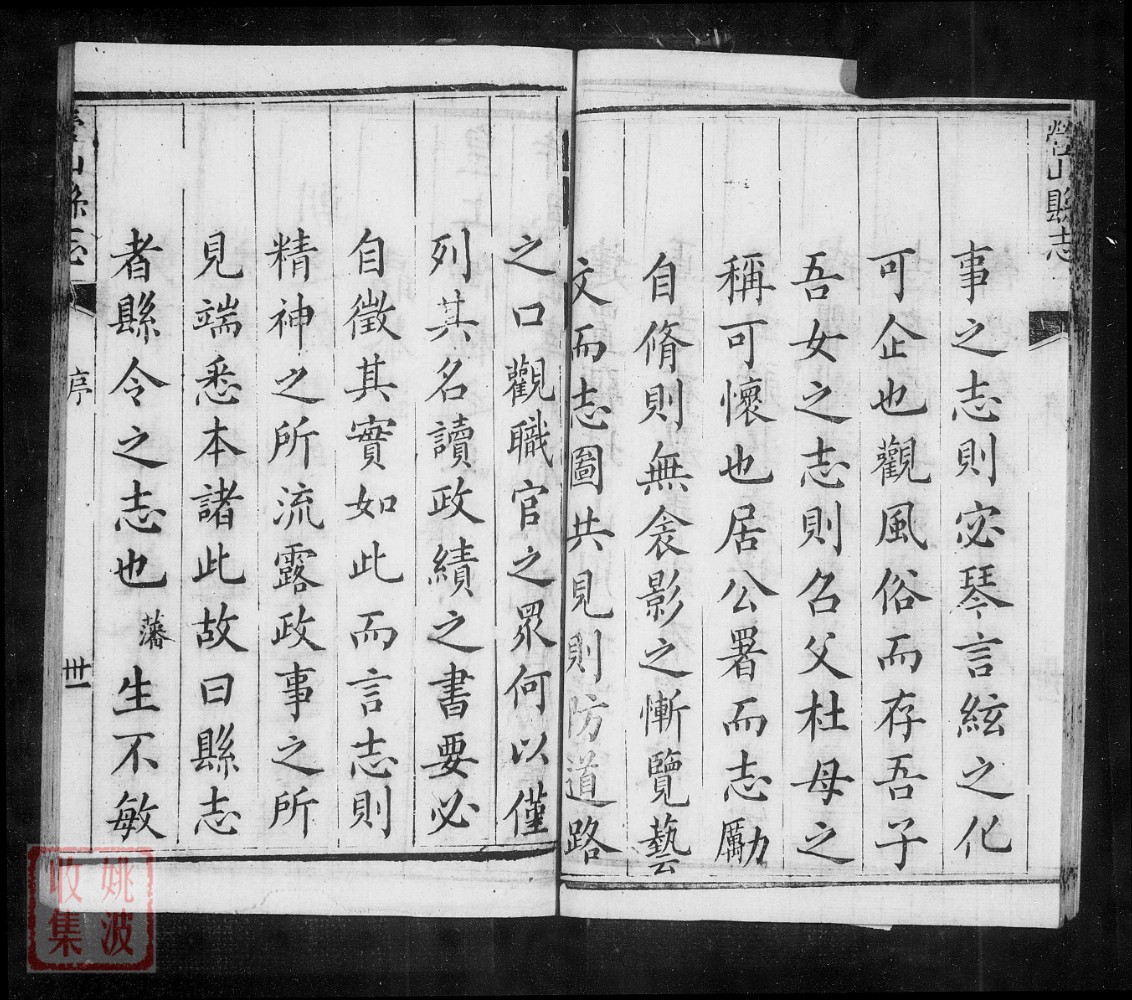 營山縣志
事之志則宓琴言絃之化
可企也觀風俗而存吾子
吾女之志則召父杜母之
稱可懷也居公署而志勵
自脩則無衾影之慚覽藝
文而志圖共見則防道路
之口觀職官之眾何以僅
列其名讀政績之書要必
自徵其實如此而言志則
精神之所流露政事之所
見端悉本諸此故曰縣志
者縣令之志也藩生不敏
營山縣志
序
卅一
姚波
收集